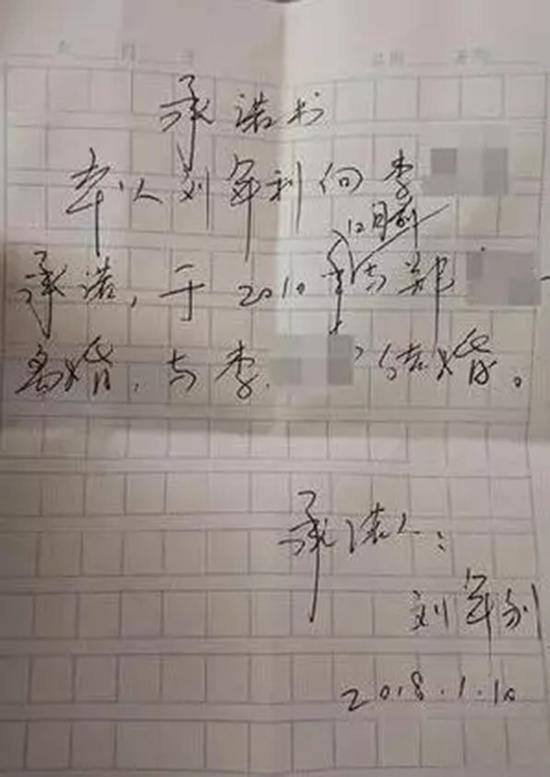 承诺书
本人刘军利向李
12月前
承诺，于2010年与郑
离婚，与李 结婚。
承诺人：
刘军利
2018.1.10